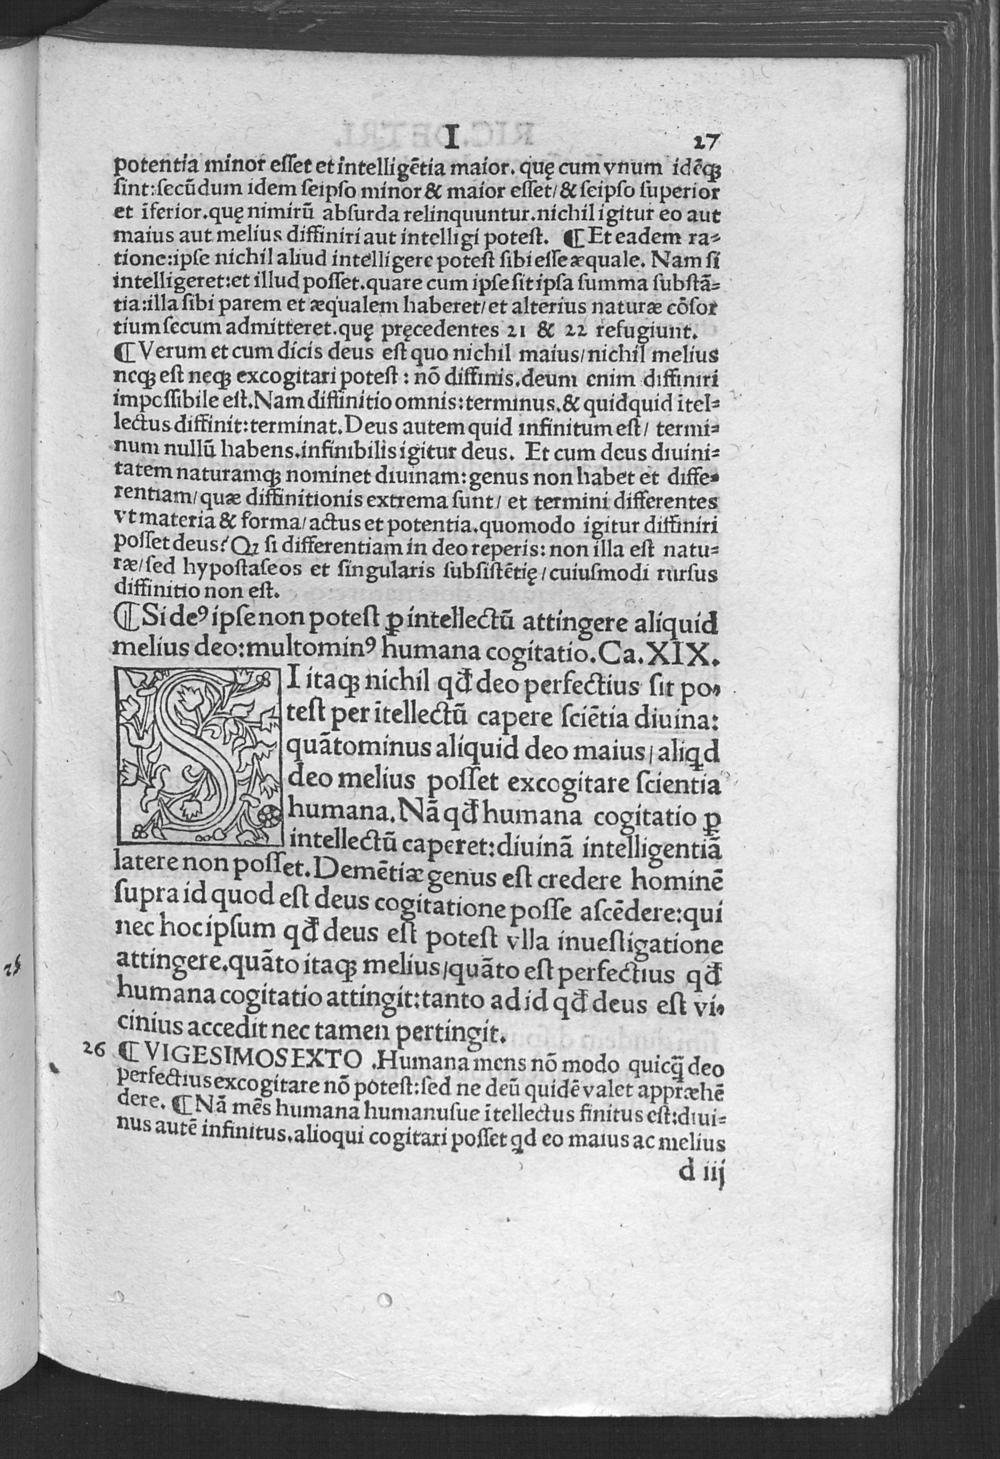 I 27
potentia minor esset et intelligẽtia maior. quę cum vnum idẽqꝫ
sint: secũdum idem seipso minor & maior esset/ & seipso superior
et ĩferior. quę nimirũ absurda relinquuntur. nichil igitur eo aut
maius aut melius diffiniri aut intelligi potest. ¶ Et eadem ra⸗
tione: ipse nichil aliud intelligere potest sibi esse æquale. Nam si
intelligeret: et illud posset. quare cum ipse sit ipsa summa substã⸗
tia: illa sibi parem et æqualem haberet/ et alterius naturæ cõsor
tium secum admitteret. quę pręcedentes 21 & 22 refugiunt.
¶ Verum et cum dicis deus est quo nichil maius/ nichil melius
neqꝫ est neqꝫ excogitari potest: nõ diffinis. deum enim diffiniri
impossibile est. Nam diffinitio omnis: terminus. & quidquid ĩtel⸗
lectus diffinit: terminat. Deus autem quid infinitum est/ termi⸗
num nullũ habens. infinibilis igitur deus. Et cum deus diuini⸗
tatem naturamqꝫ nominet diuinam: genus non habet et diffe⸗
rentiam/ quæ diffinitionis extrema sunt/ et termini differentes
vt materia & forma/ actus et potentia. quomodo igitur diffiniri
posset deus? Qꝫ si differentiam in deo reperis: non illa est natu⸗
ræ/ sed hypostaseos et singularis subsistẽtię/ cuiusmodi rursus
diffinitio non est.
¶ Si deꝰ ipse non potest ꝑ intellectũ attingere aliquid
melius deo: multominꝰ humana cogitatio. Ca. XIX.
SI itaqꝫ nichil qđ deo perfectius sit po⸗
test per ĩtellectũ capere sciẽtia diuina:
quãtominus aliquid deo maius/ aliqd
deo melius posset excogitare scientia
humana. Nã qđ humana cogitatio ꝑ
intellectũ caperet: diuinã intelligentiã
latere non posset. Demẽtiæ genus est credere hominẽ
supra id quod est deus cogitatione posse ascẽdere: qui
nec hoc ipsum qđ deus est potest vlla inuestigatione
attingere. quãto itaqꝫ melius/ quãto est perfectius qđ
humana cogitatio attingit: tanto ad id qđ deus est vi⸗
cinius accedit nec tamen pertingit.
26 ¶ VIGESIMOSEXTO. Humana mens nõ modo quicq̃ deo
perfectius excogitare nõ potest: sed ne deũ quidẽ valet appræhẽ
dere. ¶ Nã mẽs humana humanusue ĩtellectus finitus est: diui⸗
nus autẽ infinitus. alioqui cogitari posset qd eo maius ac melius
d iij